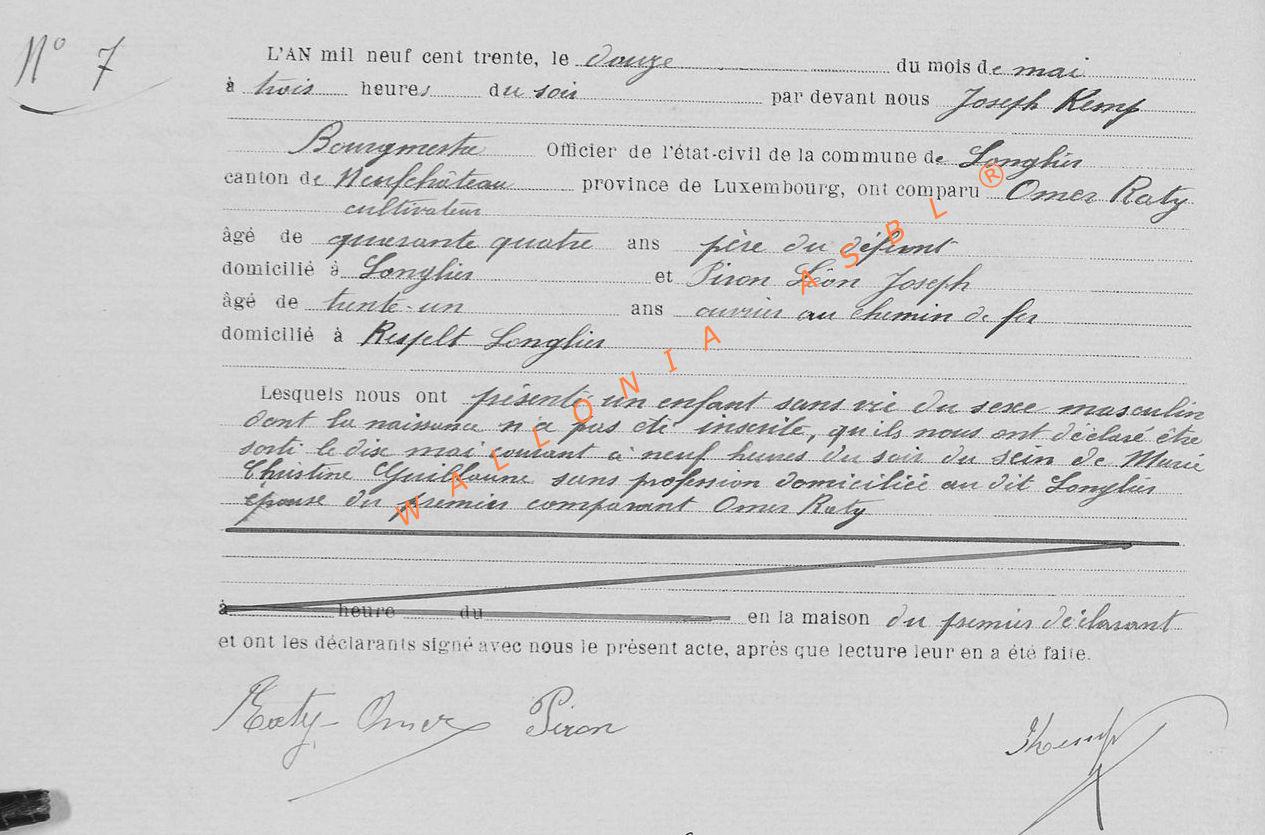 N° 7
L'AN mil neuf cent trente, le douze du mois de mai
à trois heures du soir par devant nous Joseph Kemp
Bourgmestre Officier de l'état-civil de la commune de Longlier
canton de Neufchâteau province de Luxembourg, ont comparu Omer Raty
cultivateur
âgé de quarante quatre ans père du défunt
domicilié à Longlier et Piron Léon Joseph
âgé de trente-un ans ouvrier au chemin de fer
domicilié à Respelt Longlier
Lesquels nous ont présenté un enfant sans vie du sexe masculin
dont la naissance n'a pas été inscrite, qu'ils nous ont déclaré être
sorti le dix mai courant à neuf heures du soir du sein de Marie
Christine Guillaume sans profession domiciliée au dit Longlier
épouse du premier comparant Omer Raty
à heure du en la maison du premier déclarant
et ont les déclarants signé avec nous le présent acte, après que lecture leur en a été faite.
Raty Omer Piron Kemp
WALLONIA ASBL ®